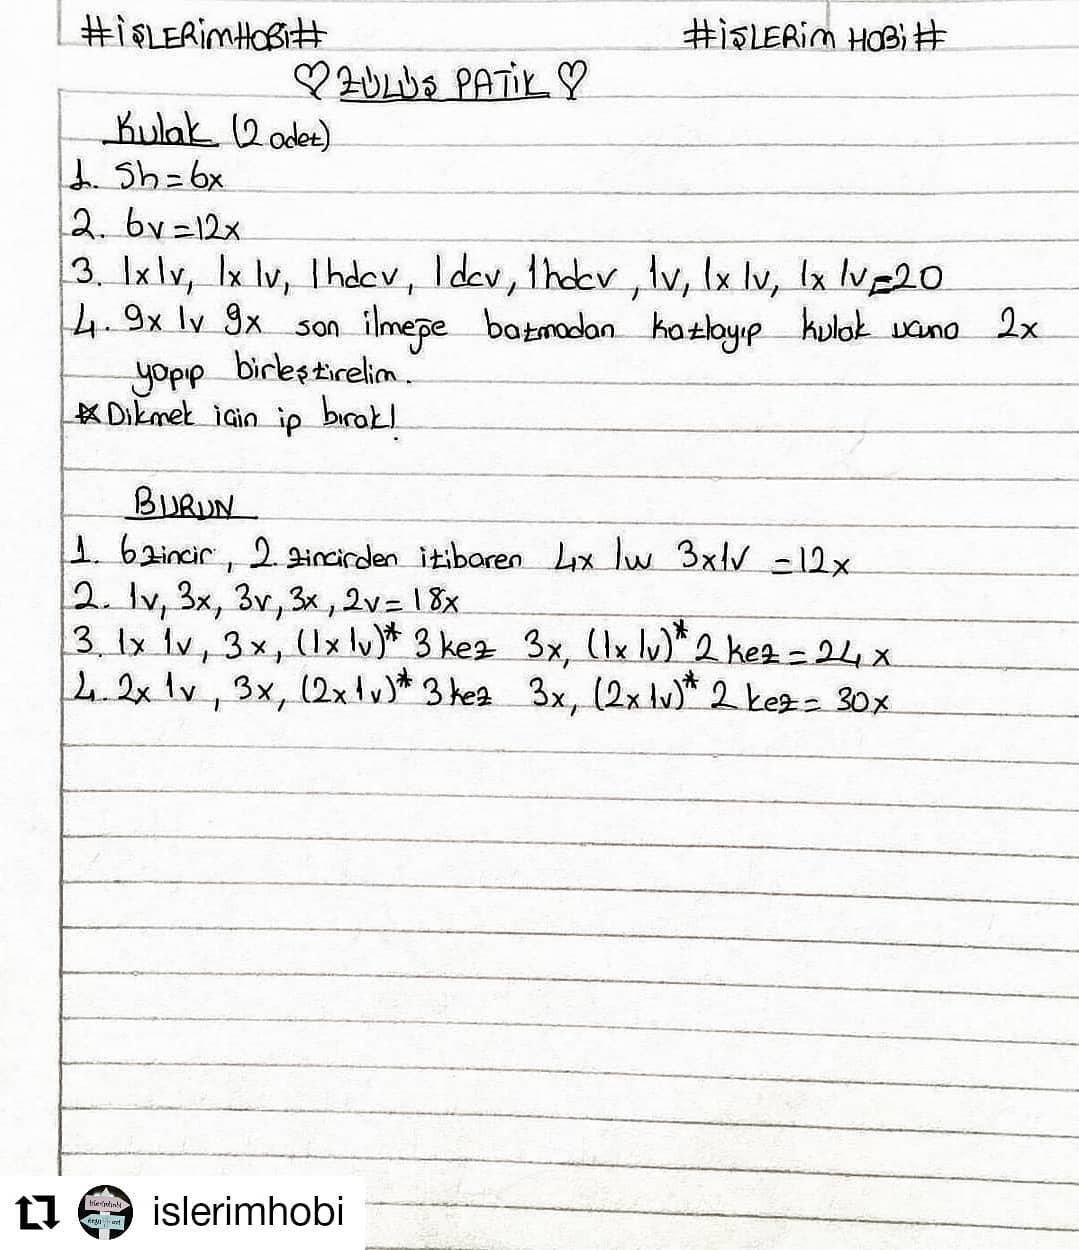 #İŞLERİMHOBİ# #İŞLERİM HOBİ#
♡ ZÜLÜŞ PATİK ♡
Kulak (2 adet)
1. Sh=6x
2. 6v=12x
3. 1x1v, 1x 1v, 1hdcv, 1dcv, 1hdcv, 1v, 1x 1v, 1x 1v=20
4. 9x 1v 9x son ilmeğe batmadan katlayıp kulak ucuna 2x
yapıp birleştirelim.
* Dikmek için ip bırak!
BURUN
1. 6zincir, 2. zincirden itibaren 4x 1w 3x1v =12x
2. 1v, 3x, 3v, 3x, 2v=18x
3. 1x 1v, 3x, (1x 1v)* 3 kez 3x, (1x 1v)* 2 kez=24x
4. 2x 1v, 3x, (2x 1v)* 3 kez 3x, (2x 1v)* 2 kez= 30x
islerimhobi